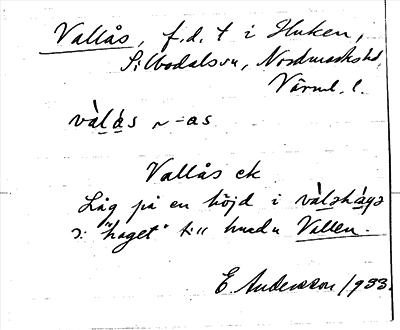 Vallås, f.d. t i Huken,
Silbodals sn, Nordmarks hd,
Värml. l.
vàlás ~ -as
Vallås ek
Låg på en höjd i vàlshágs
ɔ: "haget" till hmdn Vallen.
E. Andersson 1933.